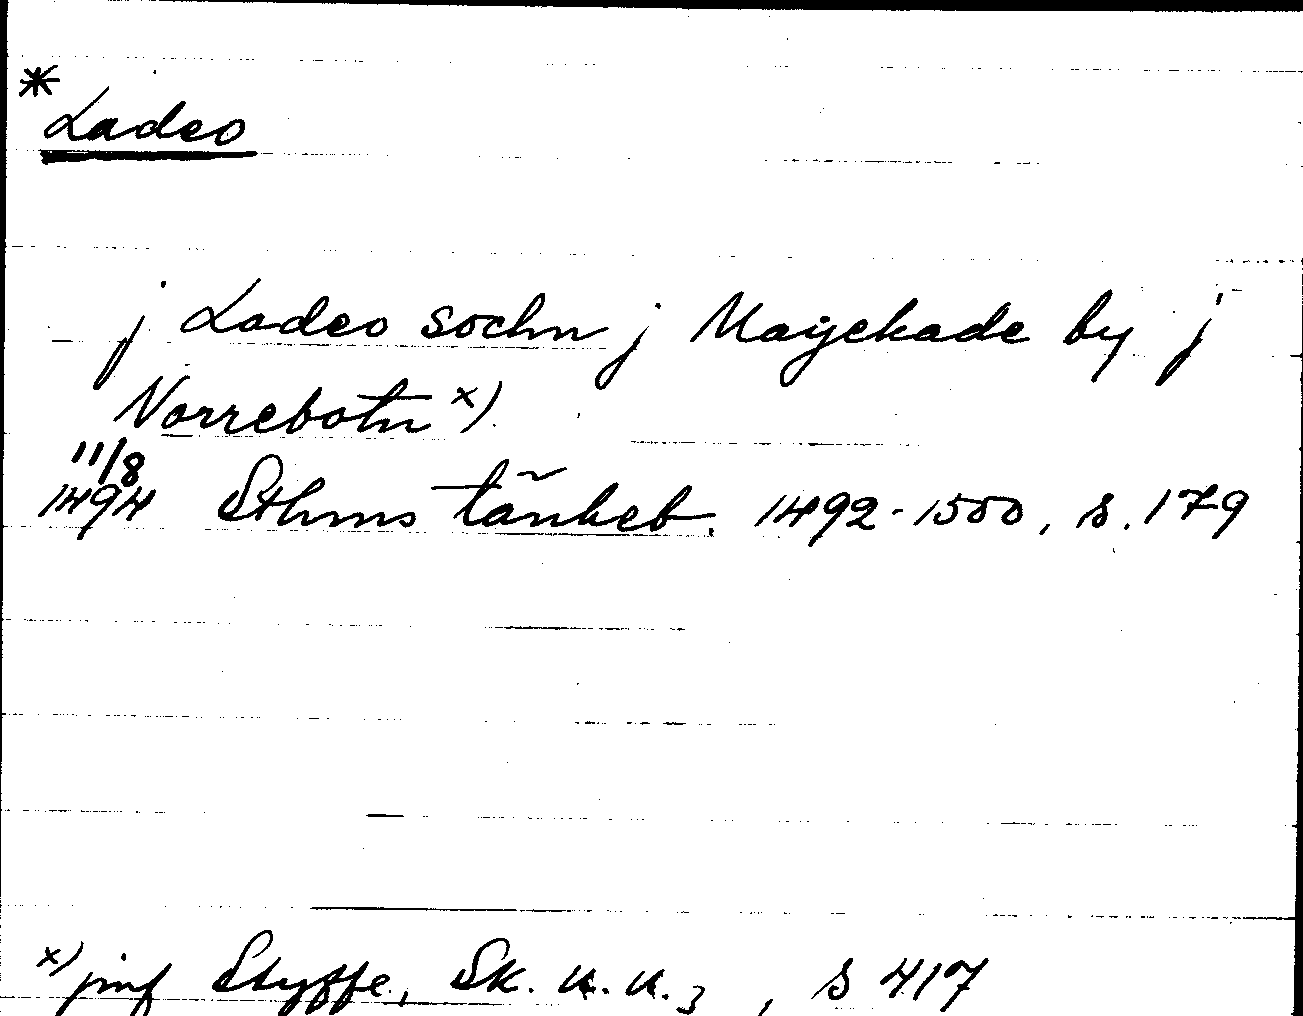 *
Ladeo
j Ladeo sochn j Mayekade by j
Norrebotn x).
11/8
1494 Sthms tänkeb. 1492-1500, s. 179
x) jmf Styffe, Sk. u. u. 3, s 417